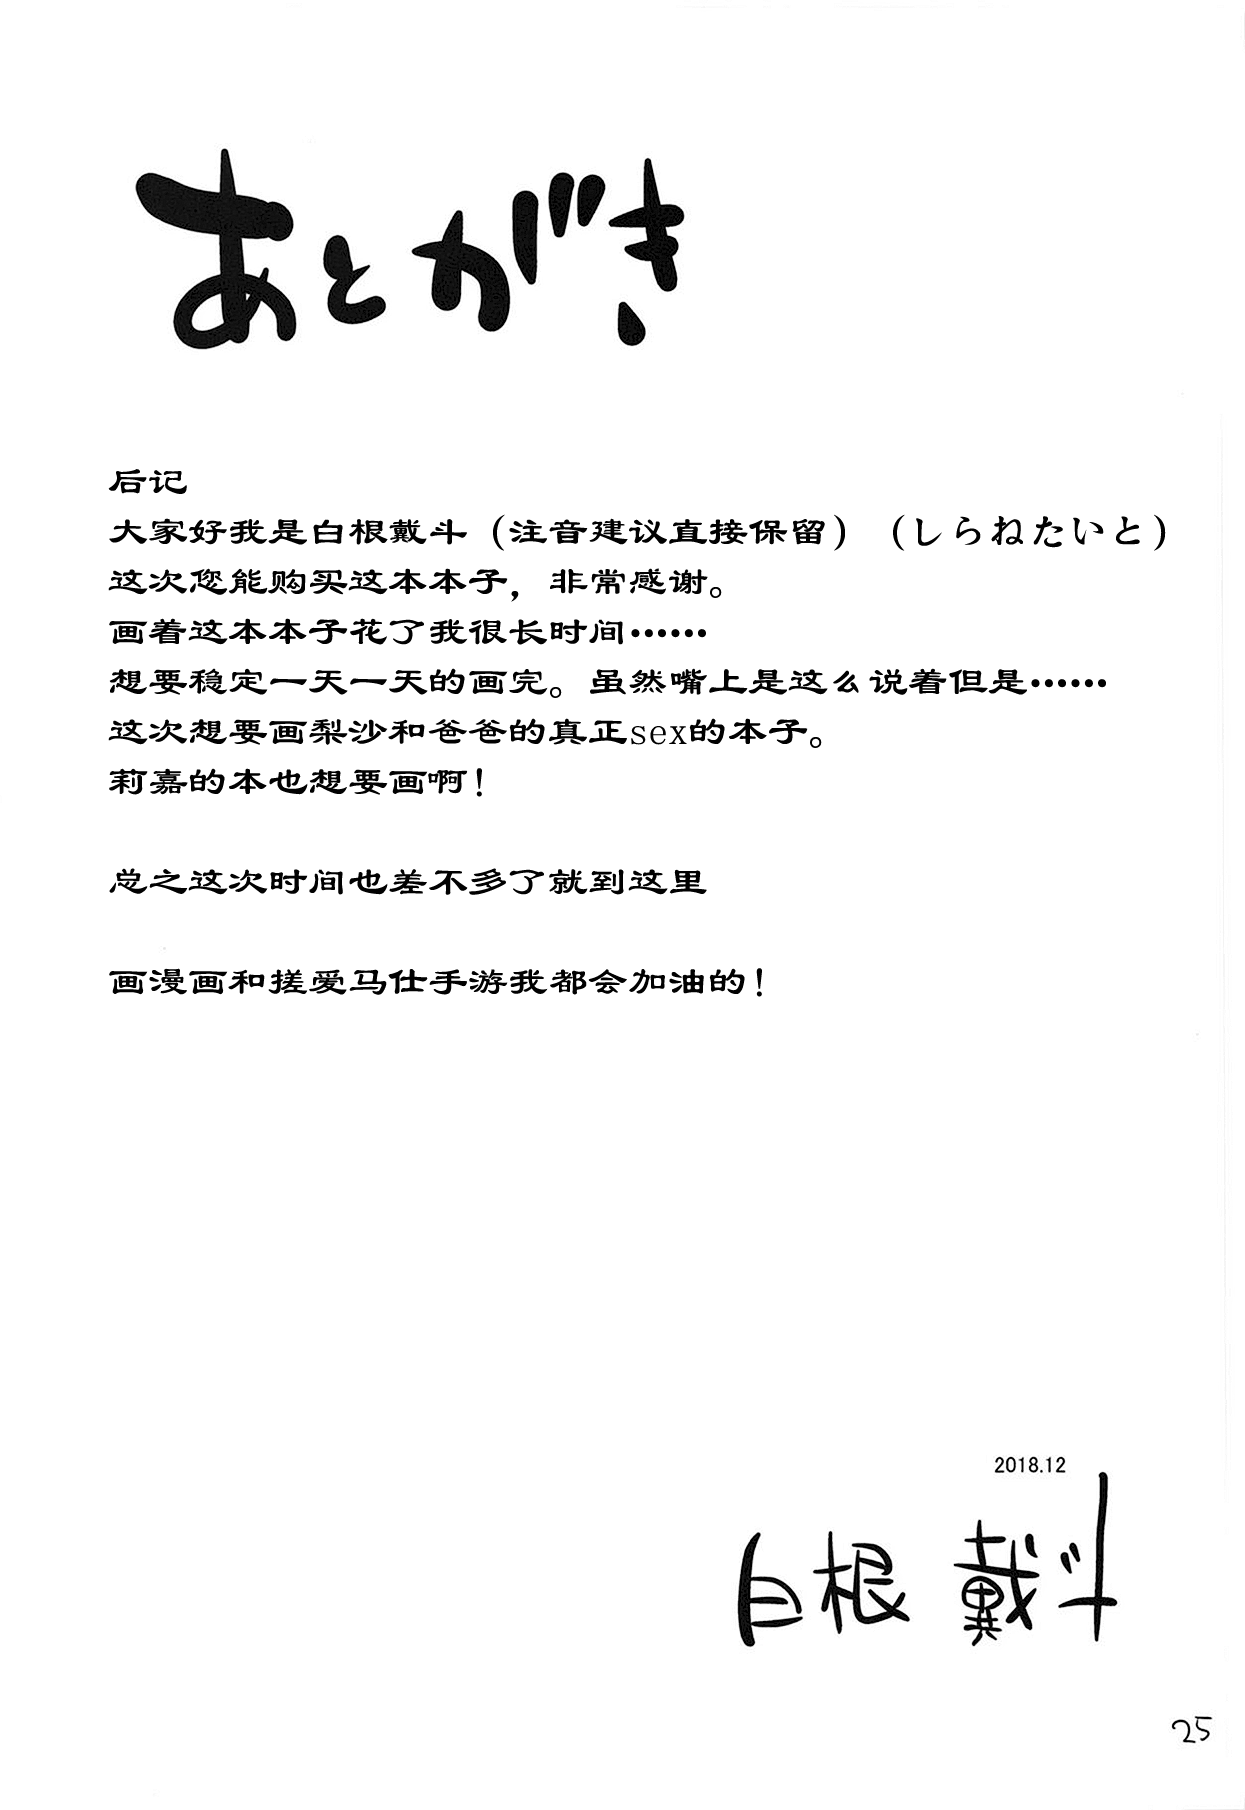 あとがき
后记
大家好我是白根戴斗（注音建议直接保留）（しらねたいと）
这次您能购买这本本子，非常感谢。
画着这本本子花了我很长时间……
想要稳定一天一天的画完。虽然嘴上是这么说着但是……
这次想要画梨沙和爸爸的真正sex的本子。
莉嘉的本也想要画啊！
总之这次时间也差不多了就到这里
画漫画和搓爱马仕手游我都会加油的！
2018.12
白根 戴斗
25